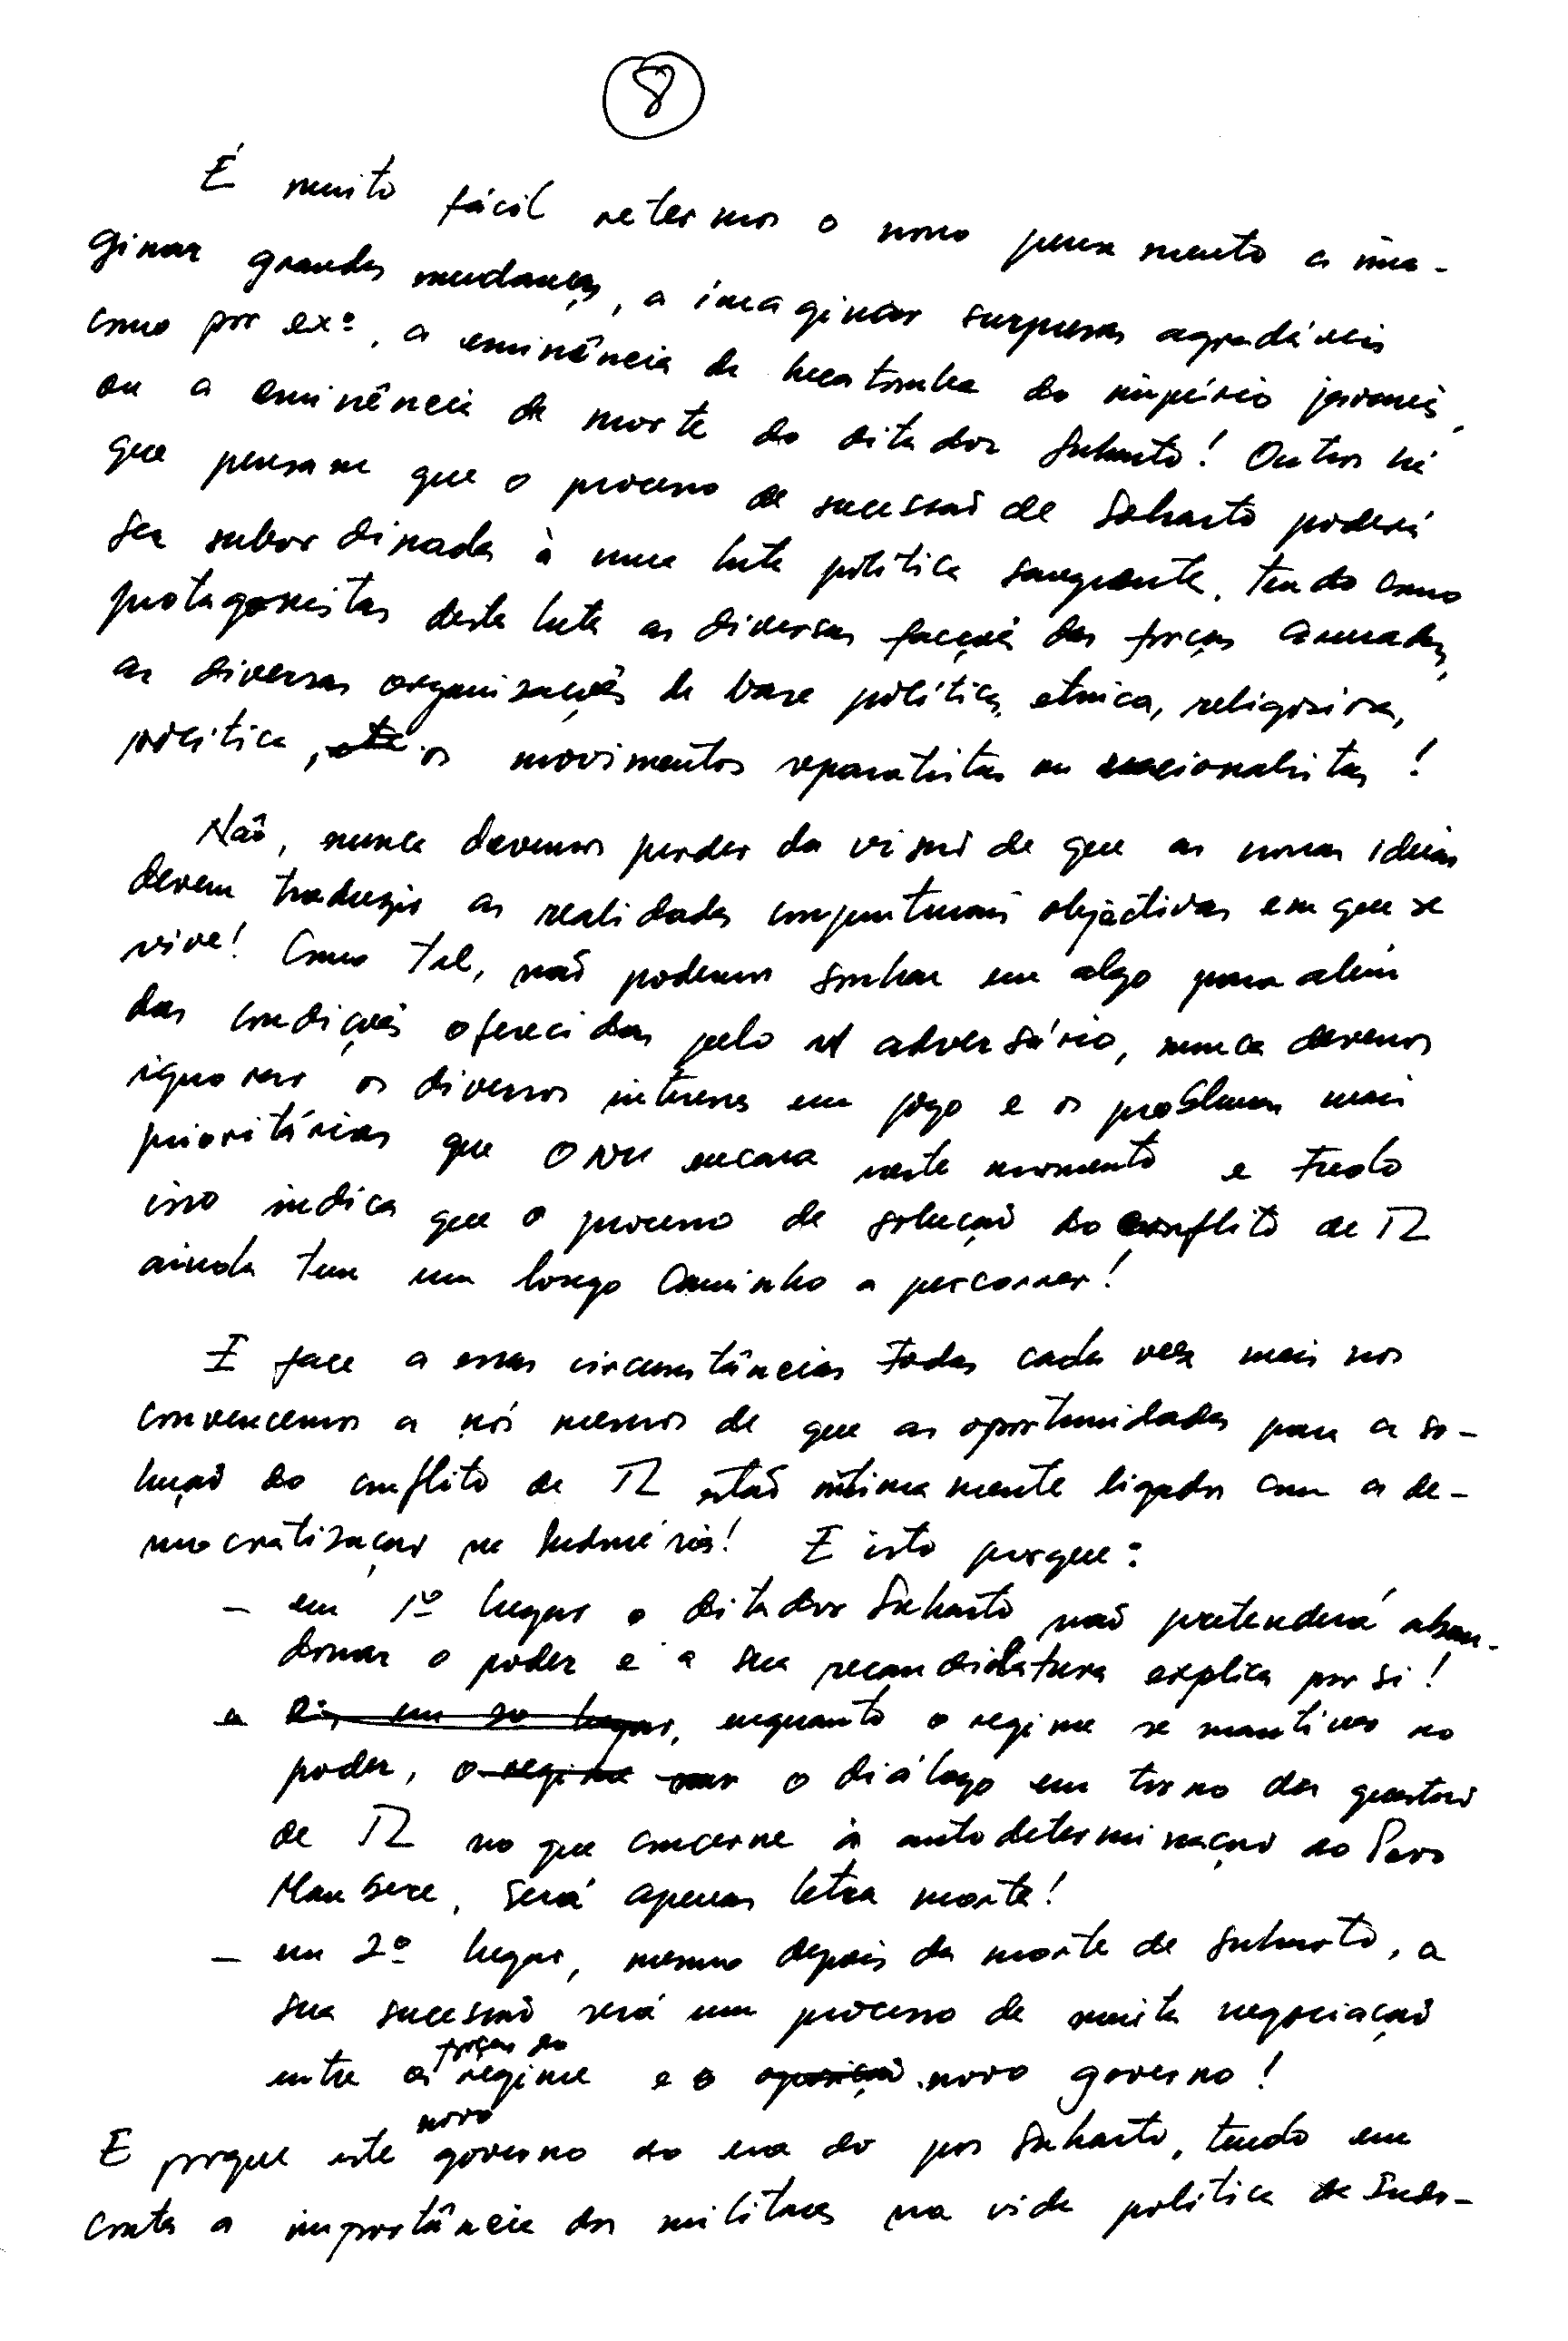 8
É muito fácil retermos o nosso pensamento a ima-
ginar grandes mudanças, a imaginar surpresas agradáveis
como por exº, a eminência da hecatombe do império javanês,
ou a eminência da morte do ditador Suharto! Outros há
que pensam que o processo de sucessão de Suharto poderá
ser subordinada à uma luta política sangrenta, tendo como
protagonistas desta luta as diversas facções das forças armadas,
as diversas organizações de base política, etnica, religiosa,
política, etc. os movimentos separatistas ou nacionalistas!
Não, nunca devemos perder da visão de que as nossas ideias
devem traduzir as realidades conjunturais objectivas em que se
vive! Como tal, não podemos sonhar em algo para além
das condições oferecidas pelo adversário, nunca devemos
ignorar os diversos interesses em jogo e os problemas mais
prioritários que ONU encara neste momento e tudo
isso indica que o processo de solução do conflito de TL
ainda tem um longo caminho a percorrer!
E face a essas circunstâncias todas cada vez mais nos
convencemos a nós mesmos de que as oportunidades para a so-
lução do conflito de TL estão intimamente ligados com a de-
mocratização na Indonésia! E isto porque:
- em 1º lugar o ditador Suharto não pretenderá aban-
donar o poder e a sua recandidatura explica por si!
e em 2o lugar, enquanto o regime se mantiver no
poder, o regime o diálogo em torno da questão
de TL no que concerne à autodeterminação do Povo
Maubere, será apenas letra morta!
- em 2º lugar, mesmo depois da morte de Suharto, a
sua sucessão será um processo de muita negociação
forças do
entre as regime e o oposição novo governo!
novo
E porque este governo da era do pos Suharto, tendo em
conta a importância dos militares na vida política da Indo-